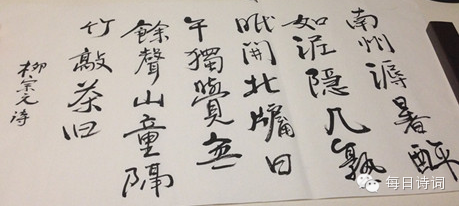 南州溽暑醉
如酒隐几熟
眠開北牖日
午獨覺無
餘聲山童隔
竹敲茶臼
柳宗元诗
每日诗词